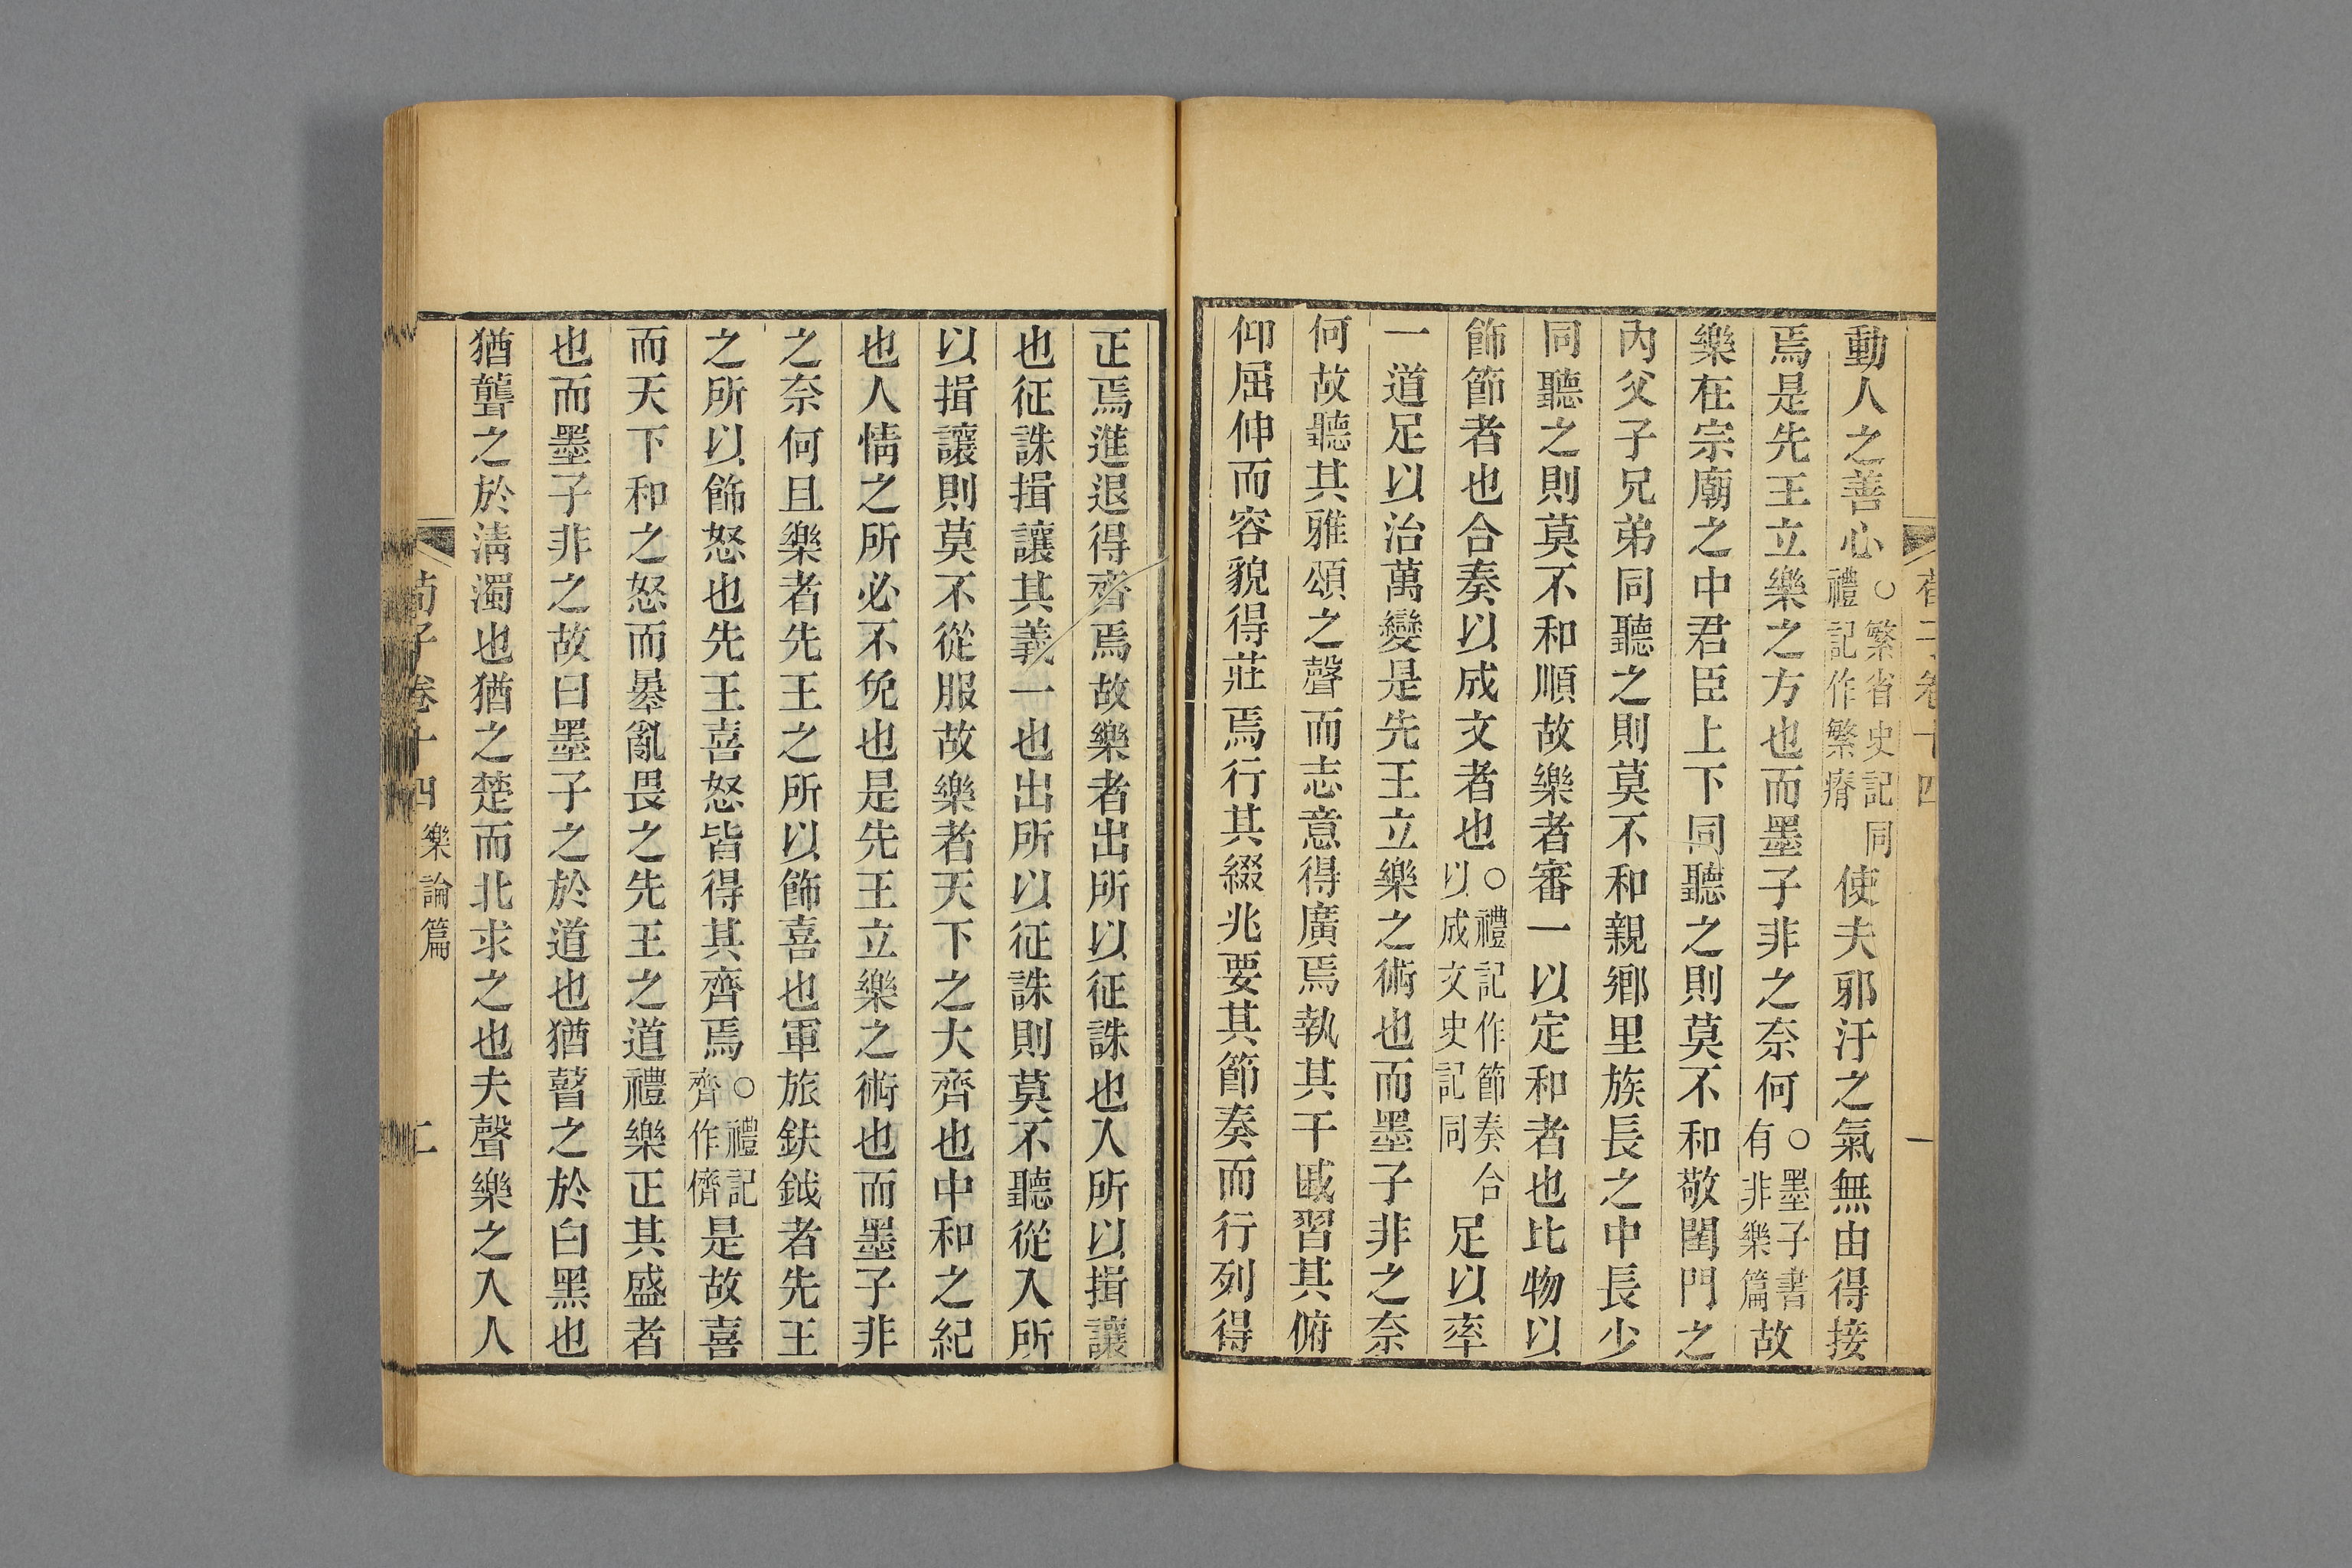 動人之善心○繁省史記同禮記作繁瘠使夫邪汙之氣無由得接
焉是先王立樂之方也而墨子非之奈何○墨子書有非樂篇故
樂在宗廟之中君臣上下同聽之則莫不和敬閨門之
內父子兄弟同聽之則莫不和親鄉里族長之中長少
同聽之則莫不和順故樂者審一以定和者也比物以
飾節者也合奏以成文者也○禮記作節奏合以成文史記同足以率
一道足以治萬變是先王立樂之術也而墨子非之奈
何故聽其雅頌之聲而志意得廣焉執其干戚習其俯
仰屈伸而容貌得莊焉行其綴兆要其節奏而行列得
正焉進退得齊焉故樂者出所以征誅也入所以揖讓
也征誅揖讓其義一也出所以征誅則莫不聽從入所
以揖讓則莫不從服故樂者天下之大齊也中和之紀
也人情之所必不免也是先王立樂之術也而墨子非
之奈何且樂者先王之所以飾喜也軍旅鈇鉞者先王
之所以飾怒也先王喜怒皆得其齊焉○禮記齊作儕是故喜
而天下和之怒而暴亂畏之先王之道禮樂正其盛者
也而墨子非之故曰墨子之於道也猶瞽之於白黑也
猶聾之於淸濁也猶之楚而北求之也夫聲樂之入人
荀子卷十四 樂論篇 二